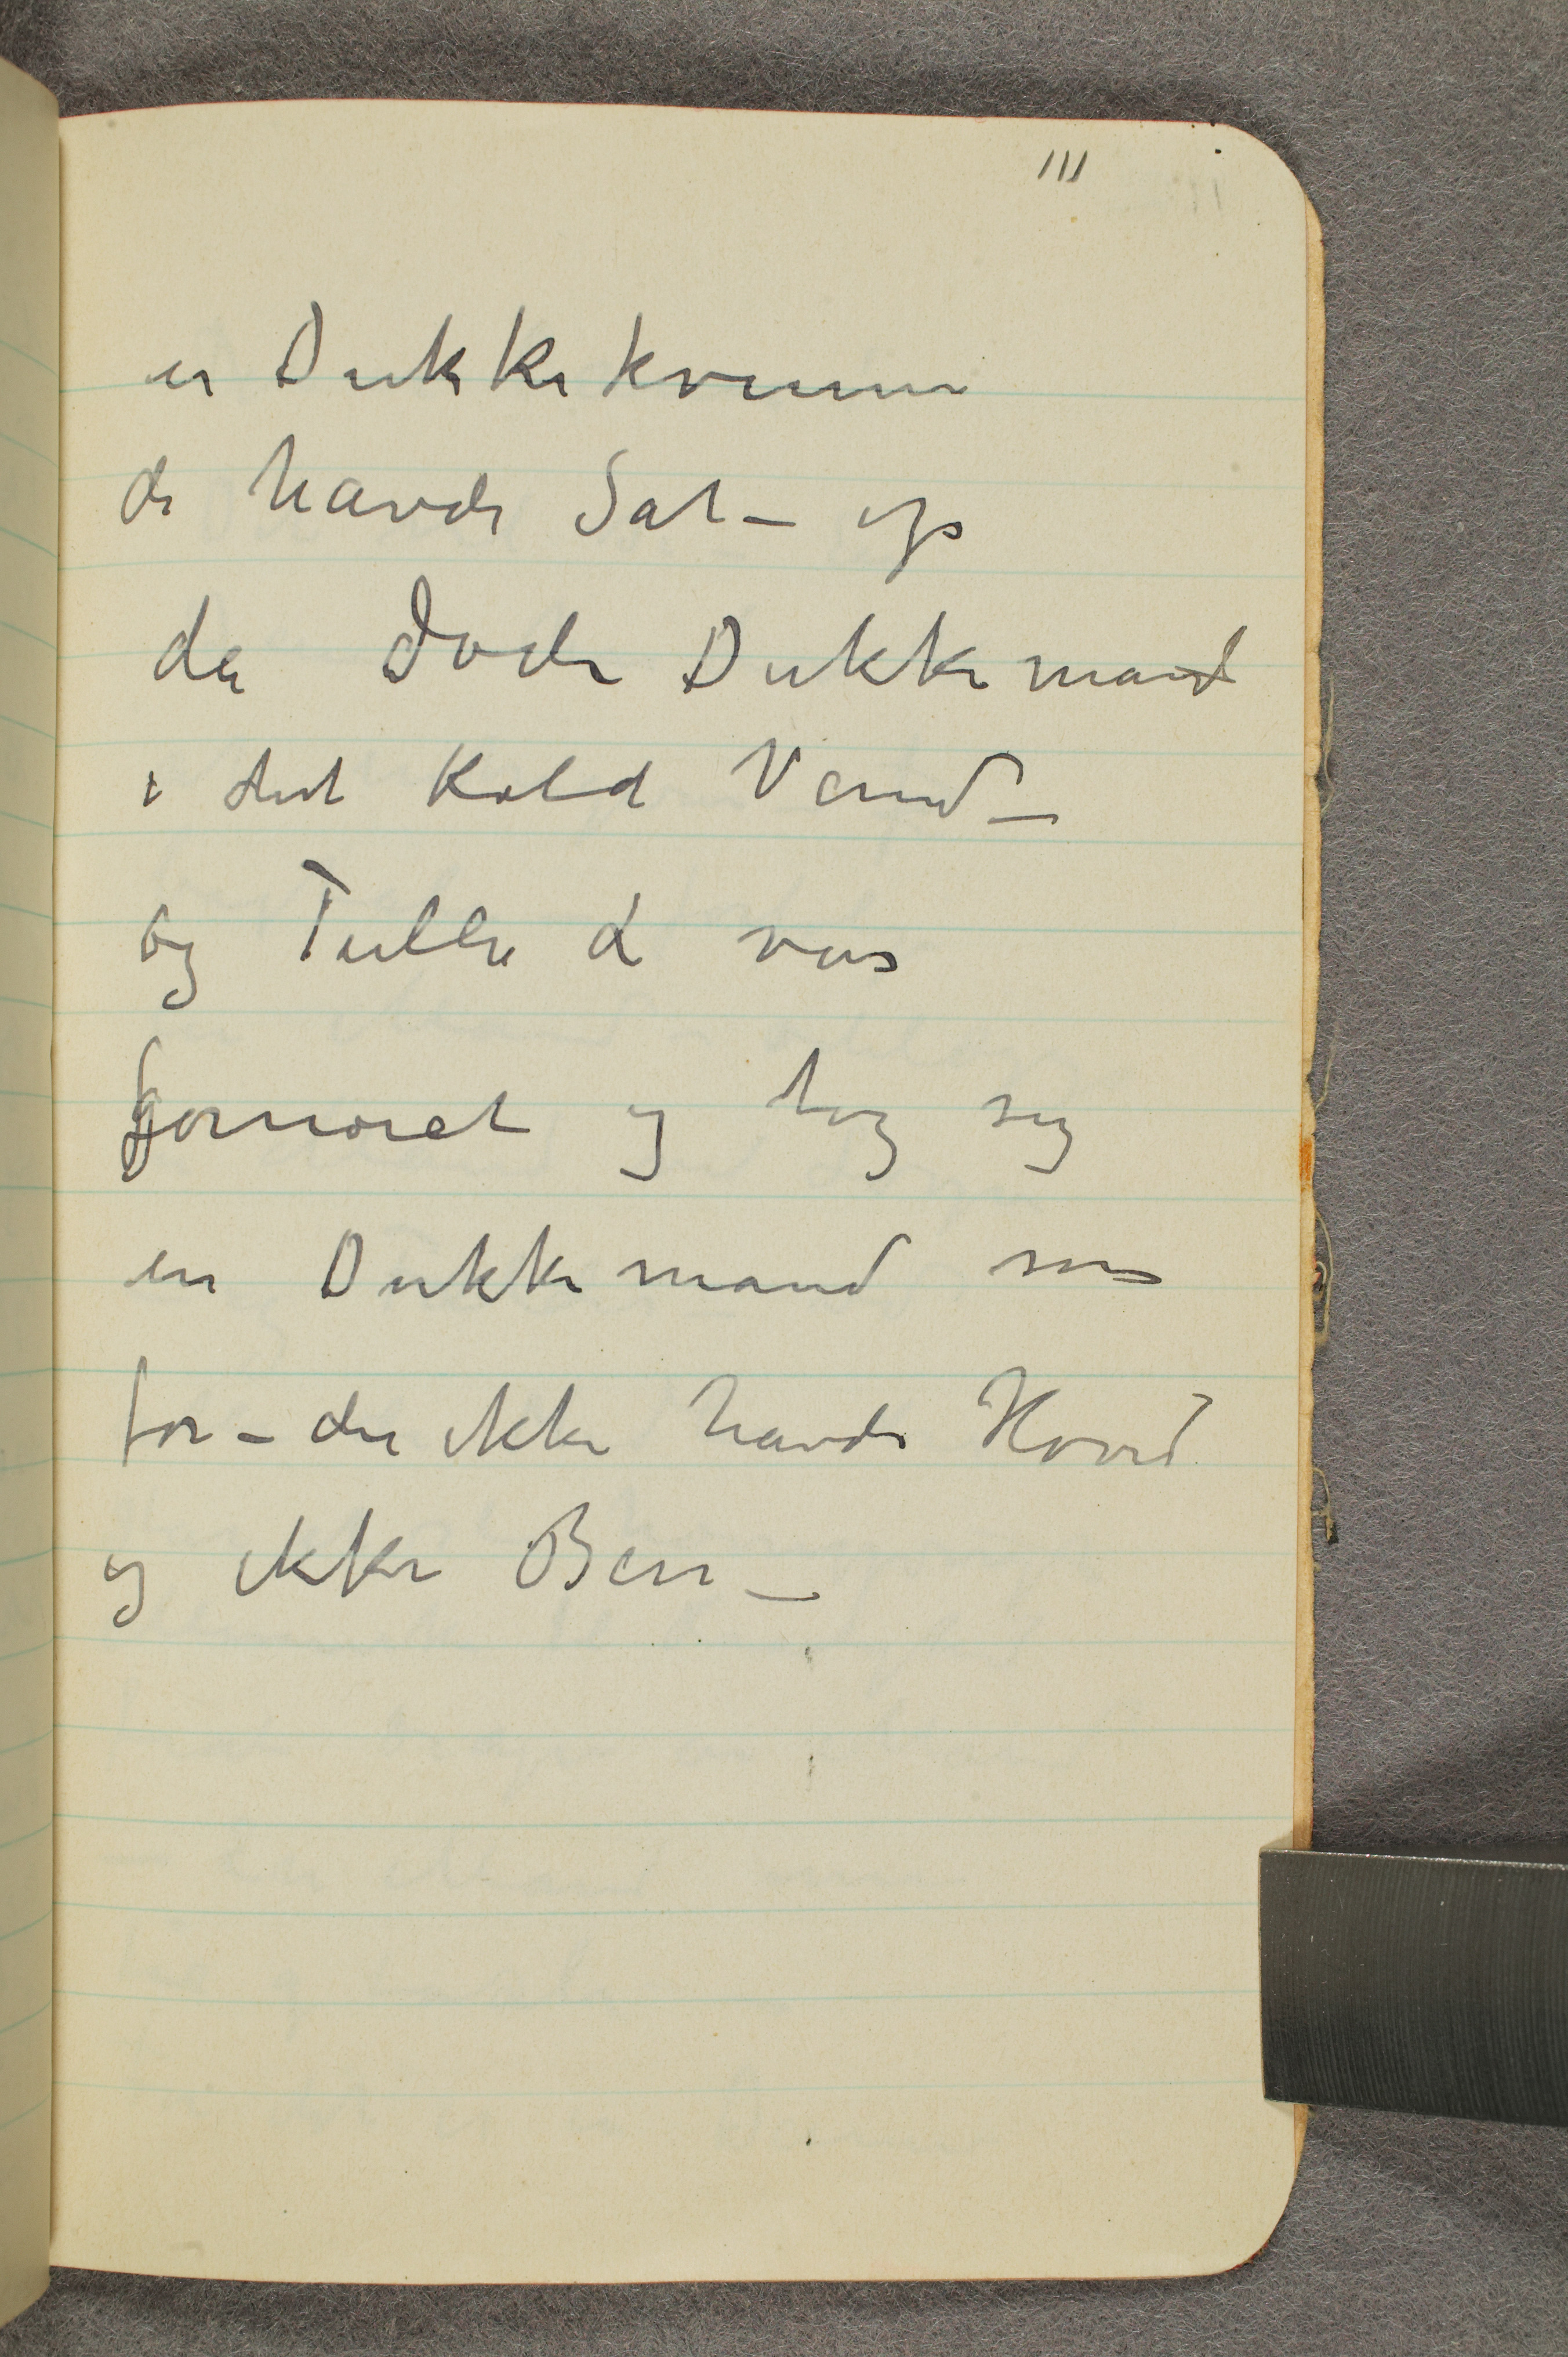 111
er Dukkekvinne
de havde Sat – op
da døde Dukkemand
i det Kold Vand –
og Tulla d var
fornøiet og tog sig
en Dukkemand som
for – der ikke havde Hoved
og ikke Ben –